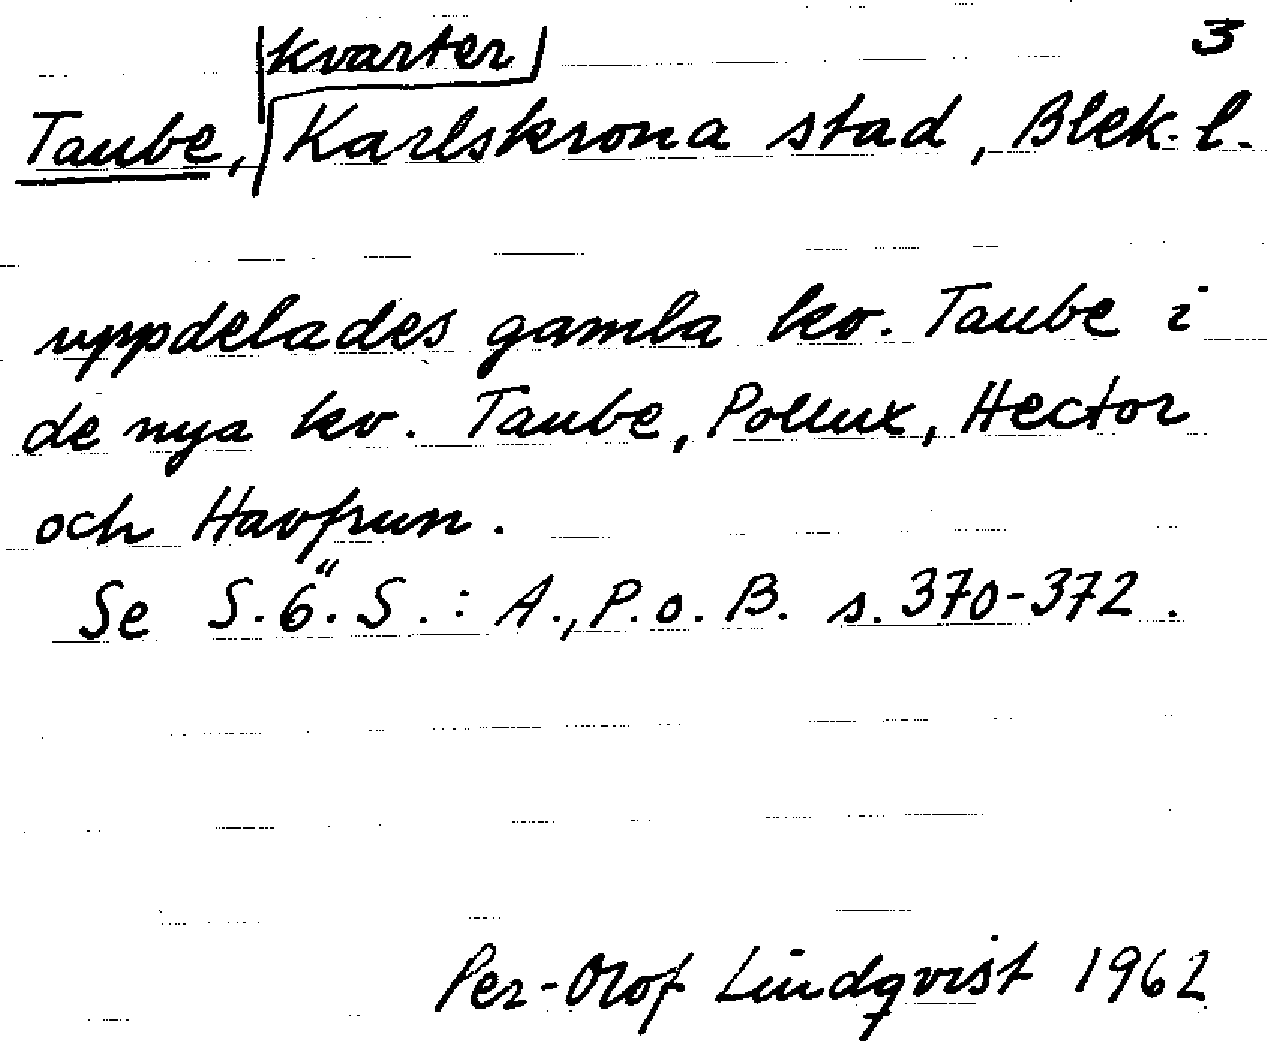 3
Taube, kvarter Karlskrona stad, Blek. l.
uppdelades gamla kv. Taube i
de nya kv. Taube, Pollux, Hector
och Havfrun.
Se S.ö.S.: A., P. o. B. s. 370-372.
Per-Olof Lindqvist 1962